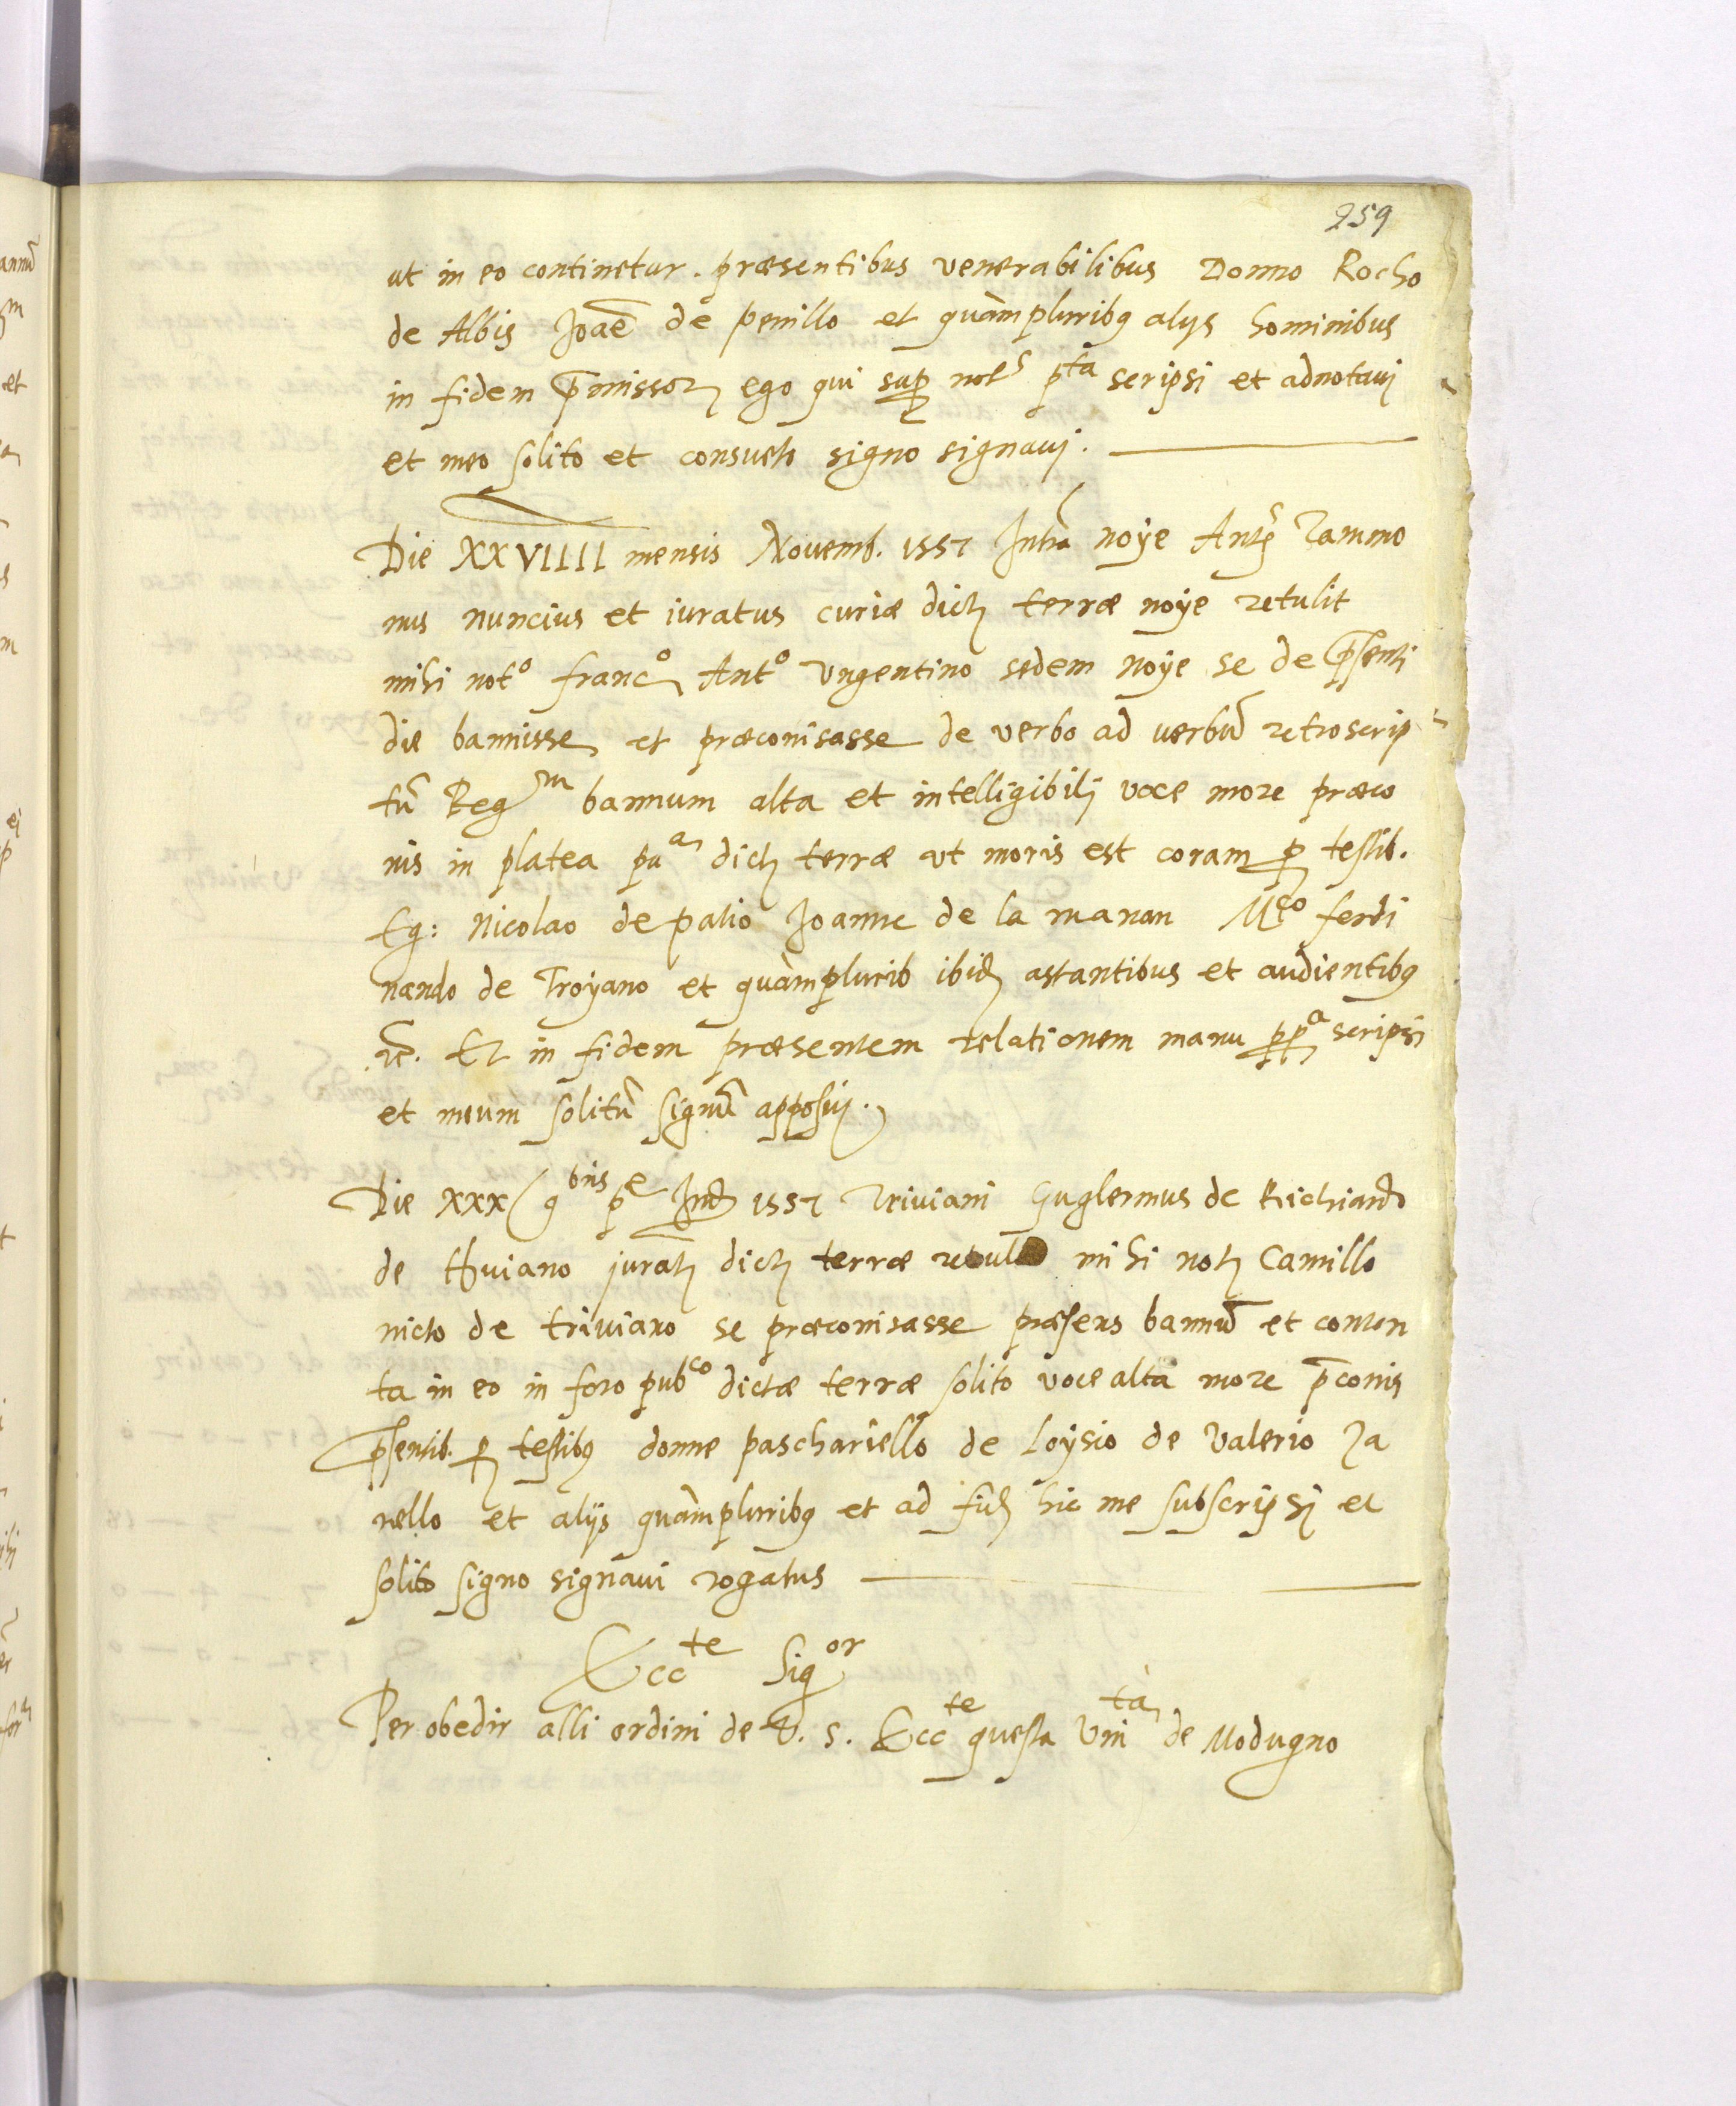 259
ut in eo continetur. præsentibus venerabilibus Donno Rocho
de Albis Joãe de penillo et quàmpluribꝰ alijs hominibus
in fidem p̄missoꝝ ego qui sup notˢ pᵗᵃ scripsi et adnotavj
et meo solito et consueto signo signavj.
Die XXVIIII mensis Novemb. 1557 Intrã noye Antꝰ Tammo
nus nuncius et iuratus curiæ dictę terræ noye retulit
mihi notᵒ francᵒ Antᵒ Ungentino sedem noye se de p̄senti
die bannisse et præconisasse de verbo ad verbũ retroscrip
tũ Regᵐ bannum alta et intelligibilj voce more præco
nis in platea puᵃ dictę terræ ut moris est coram ꝑ testib.
Eg: Nicolao de patio Joanne de la manan Mᶜᵒ ferdi
nando de Troyano et quàmplurib ibid astantibus et audientibꝰ
&c. Et in fidem præsentem relationem manu ꝓpᵃ scripsi
et meum solitũ signũ apposuj.
Die XXX 9ᵇʳⁱˢ pᵉ Ind 1557 Triviani Guglermus de Richiardo
de Triviano juratę dictę terræ retul mihi notę Camillo
nicto de triviano se præconisasse præsens bannũ et conten
ta in eo in foro pubᶜᵒ dictæ terræ solito voce alta more p̄conis
p̄sentib. ꝑ testibꝰ donne paschariello de Loysio de Valerio Za
nello et alijs quàmpluribꝰ et ad fid hic me subscripsj et
solito signo signavi rogatus
Eccᵗᵉ Sigᵒʳ
Per obedir alli ordini de V. S. Eccᵗᵉ questa Uniᵗᵃ de Modugno